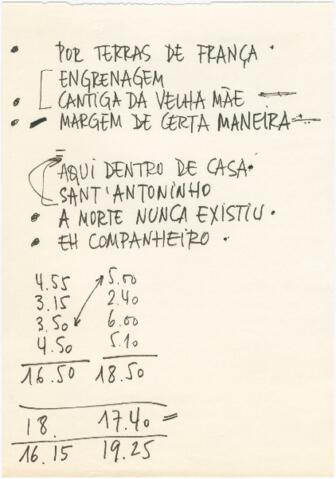 POR TERRAS DE FRANÇA
ENGRENAGEM
CANTIGA DA VELHA MÃE
MARGEM DE CERTA MANEIRA
AQUI DENTRO DE CASA
SANT'ANTONINHO
A MORTE NUNCA EXISTIU
EH COMPANHEIRO
4.55 5.00
3.15 2.40
3.50 6.00
4.50 5.10
16.50 18.50
18. 17.40 =
16.15 19.25